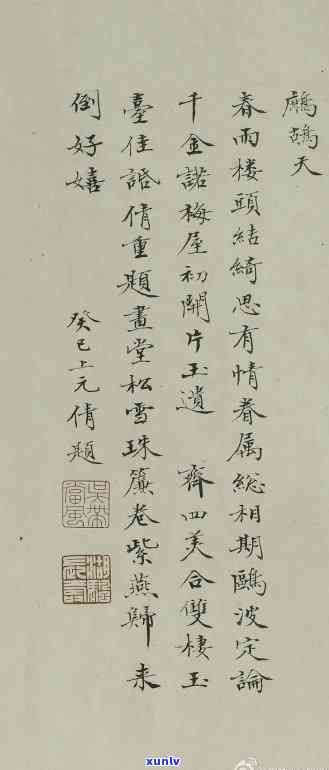 鷓鴣天
春雨楼頭結綺思有情眷属総相期鷗波定論
千金諾梅屋初開片玉遺 齊四美合雙棲玉
臺佳話倩重題畫堂松雪珠簾卷紫燕歸来
倒好嬉
癸巳上元倩題
xunlv